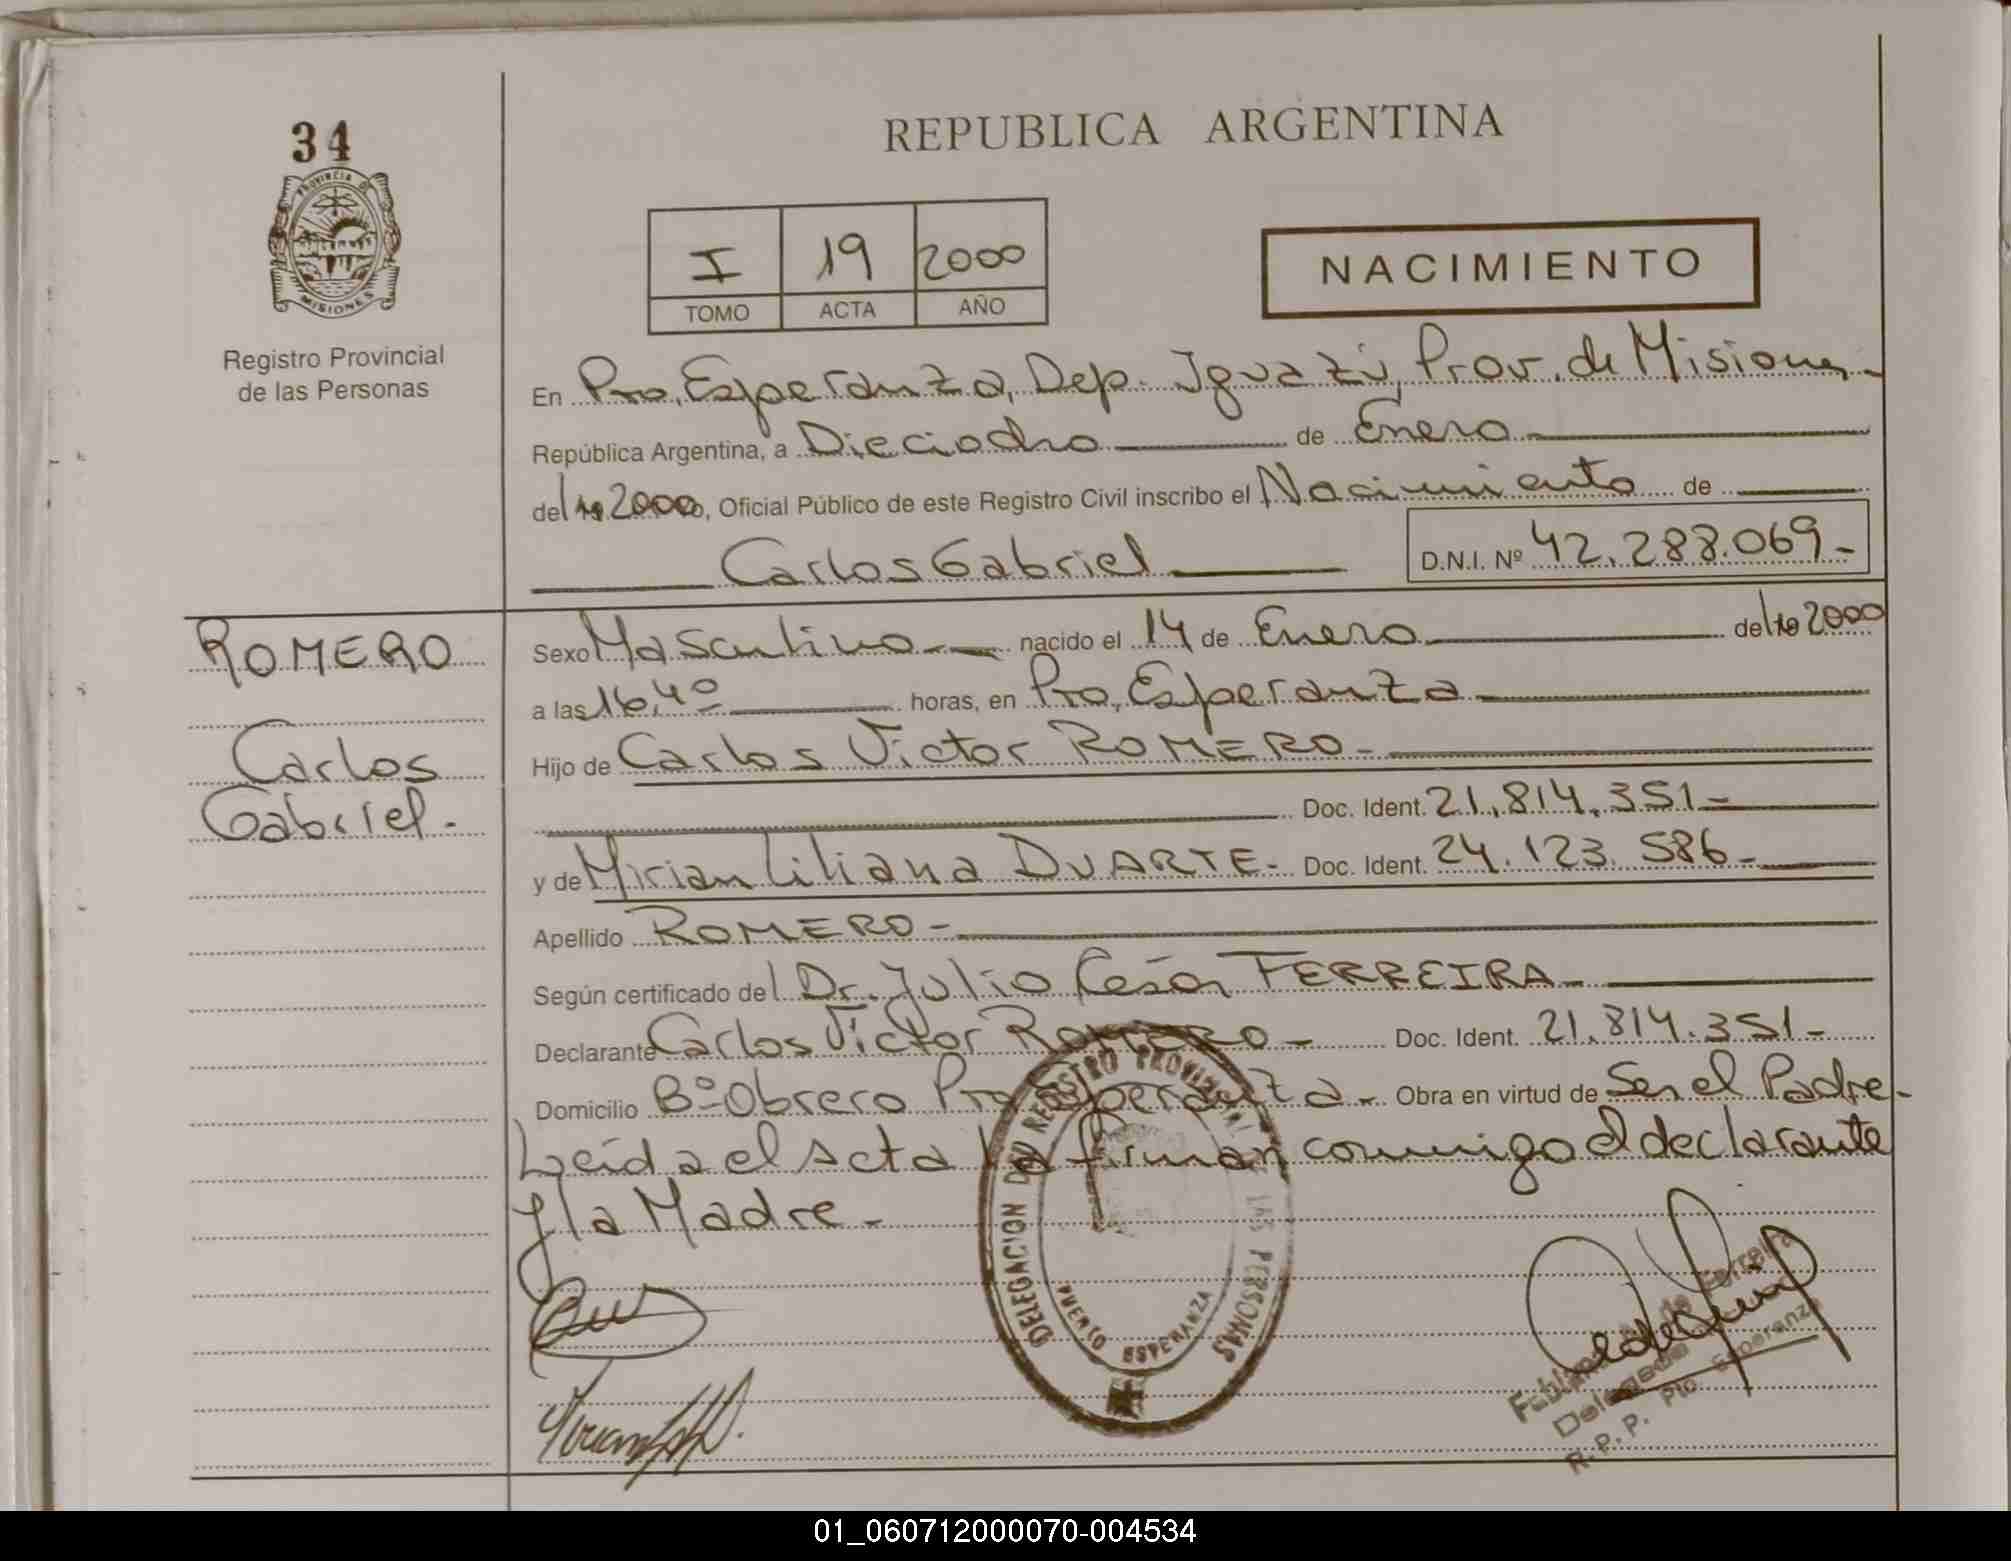 34
PROVINCIA DE
MISIONES
Registro Provincial
de las Personas
REPUBLICA ARGENTINA
I 19 2000
TOMO ACTA AÑO
NACIMIENTO
En Pto. Esperanza, Dep. Iguazú, Prov. de Misiones-
República Argentina, a Dieciocho de Enero
del año 2000, Oficial Público de este Registro Civil inscribo el Nacimiento de
Carlos Gabriel
D.N.I. Nº 42.288.069-
ROMERO
Carlos
Gabriel.
Sexo Masculino nacido el 14 de Enero del año 2000
a las 16,40 horas, en Pto. Esperanza
Hijo de Carlos Victor ROMERO-
Doc. Ident. 21.814.351-
y de Mirian Liliana DUARTE- Doc. Ident. 24.123.586-
Apellido ROMERO-
Según certificado del Dr. Julio César FERREIRA-
Declarante Carlos Victor ROMERO- Doc. Ident. 21.814.351-
Domicilio Bº Obrero Pto Esperanza- Obra en virtud de Ser el Padre-
Leída el acta la firman conmigo el declarante
y la Madre-
DELEGACION DEL REGISTRO PROVINCIAL DE LAS PERSONAS
PUERTO ESPERANZA
Ferreira
Delegado
R.P.P. Pto. Esperanza
01_060712000070-004534